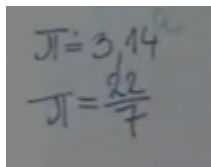 π=3,14
π=22/7